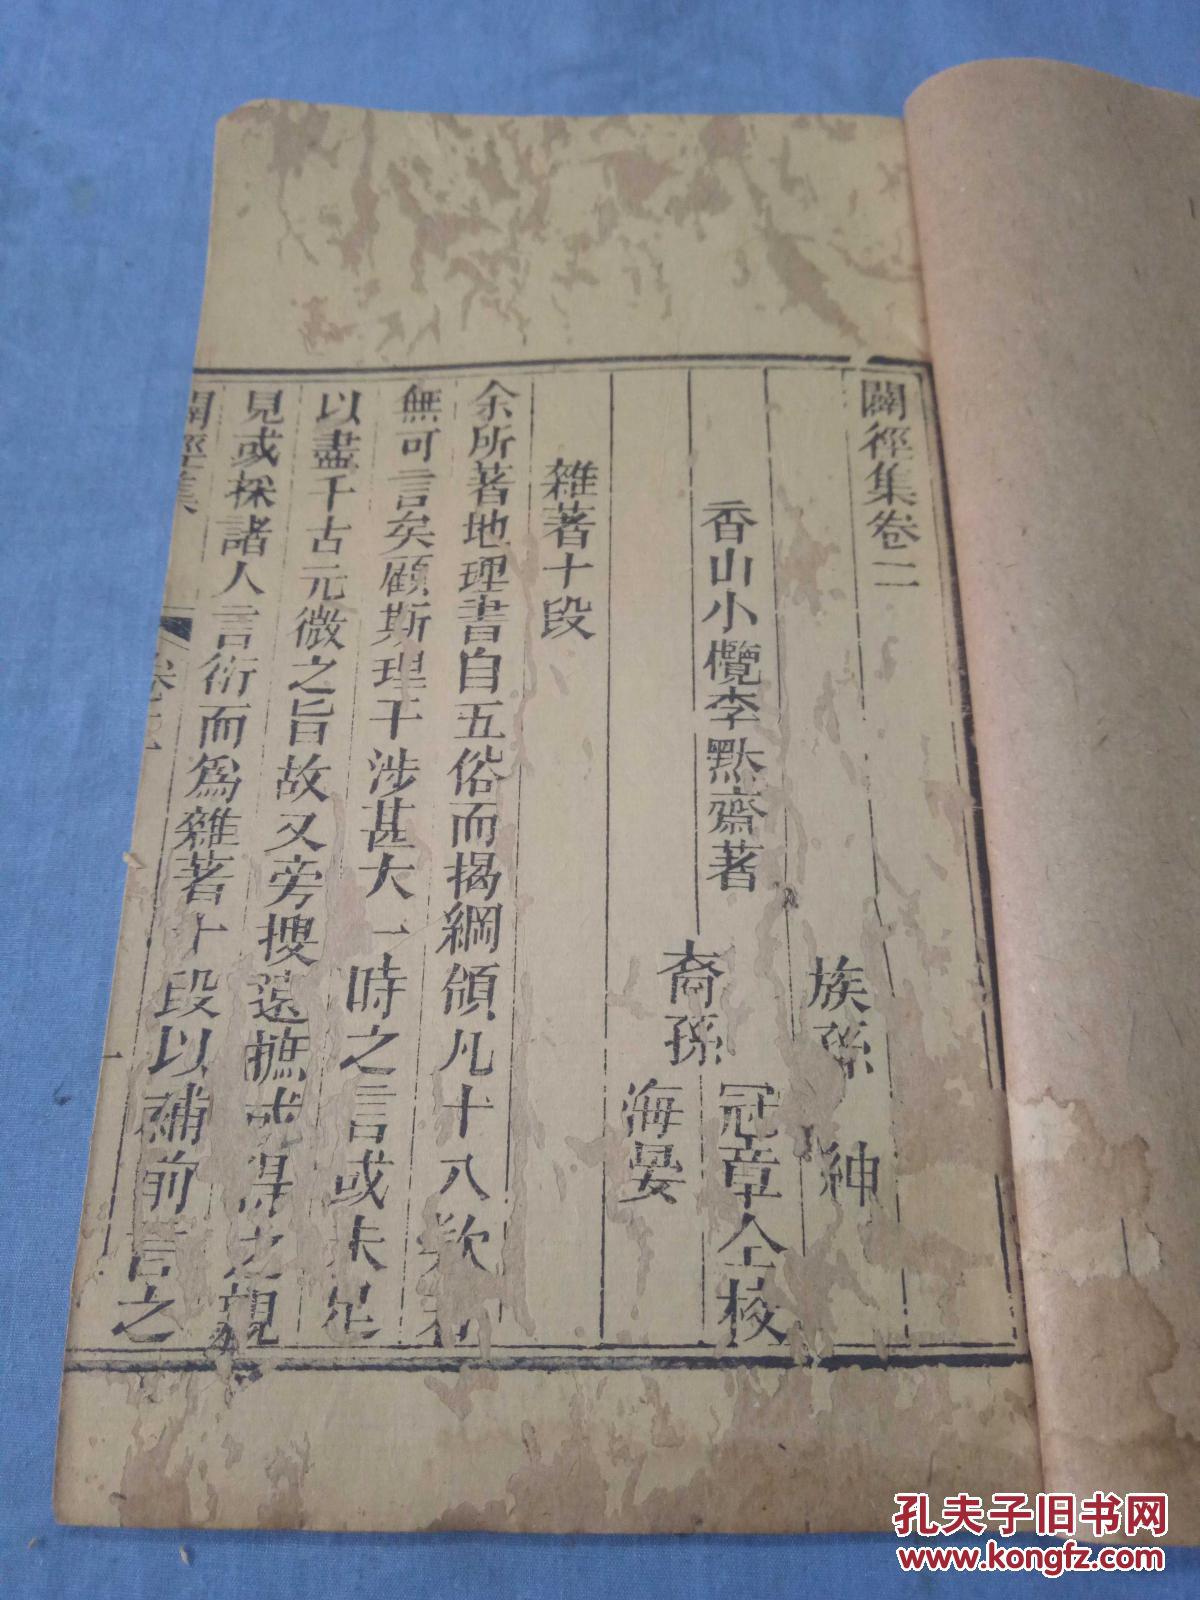 闢徑集卷二
族孫 紳
香山小欖李默齋著
冠章仝校
裔孫
海晏
雜著十段
余所著地理書自五俗而揭綱領凡十八欵
無可言矣顧斯理干涉甚大一時之言或未足
以盡千古元微之旨故又旁搜遠摭或得之親
見或採諸人言衍而爲雜著十段以補前言之
闢徑集
卷二
一
孔夫子旧书网
www.kongfz.com